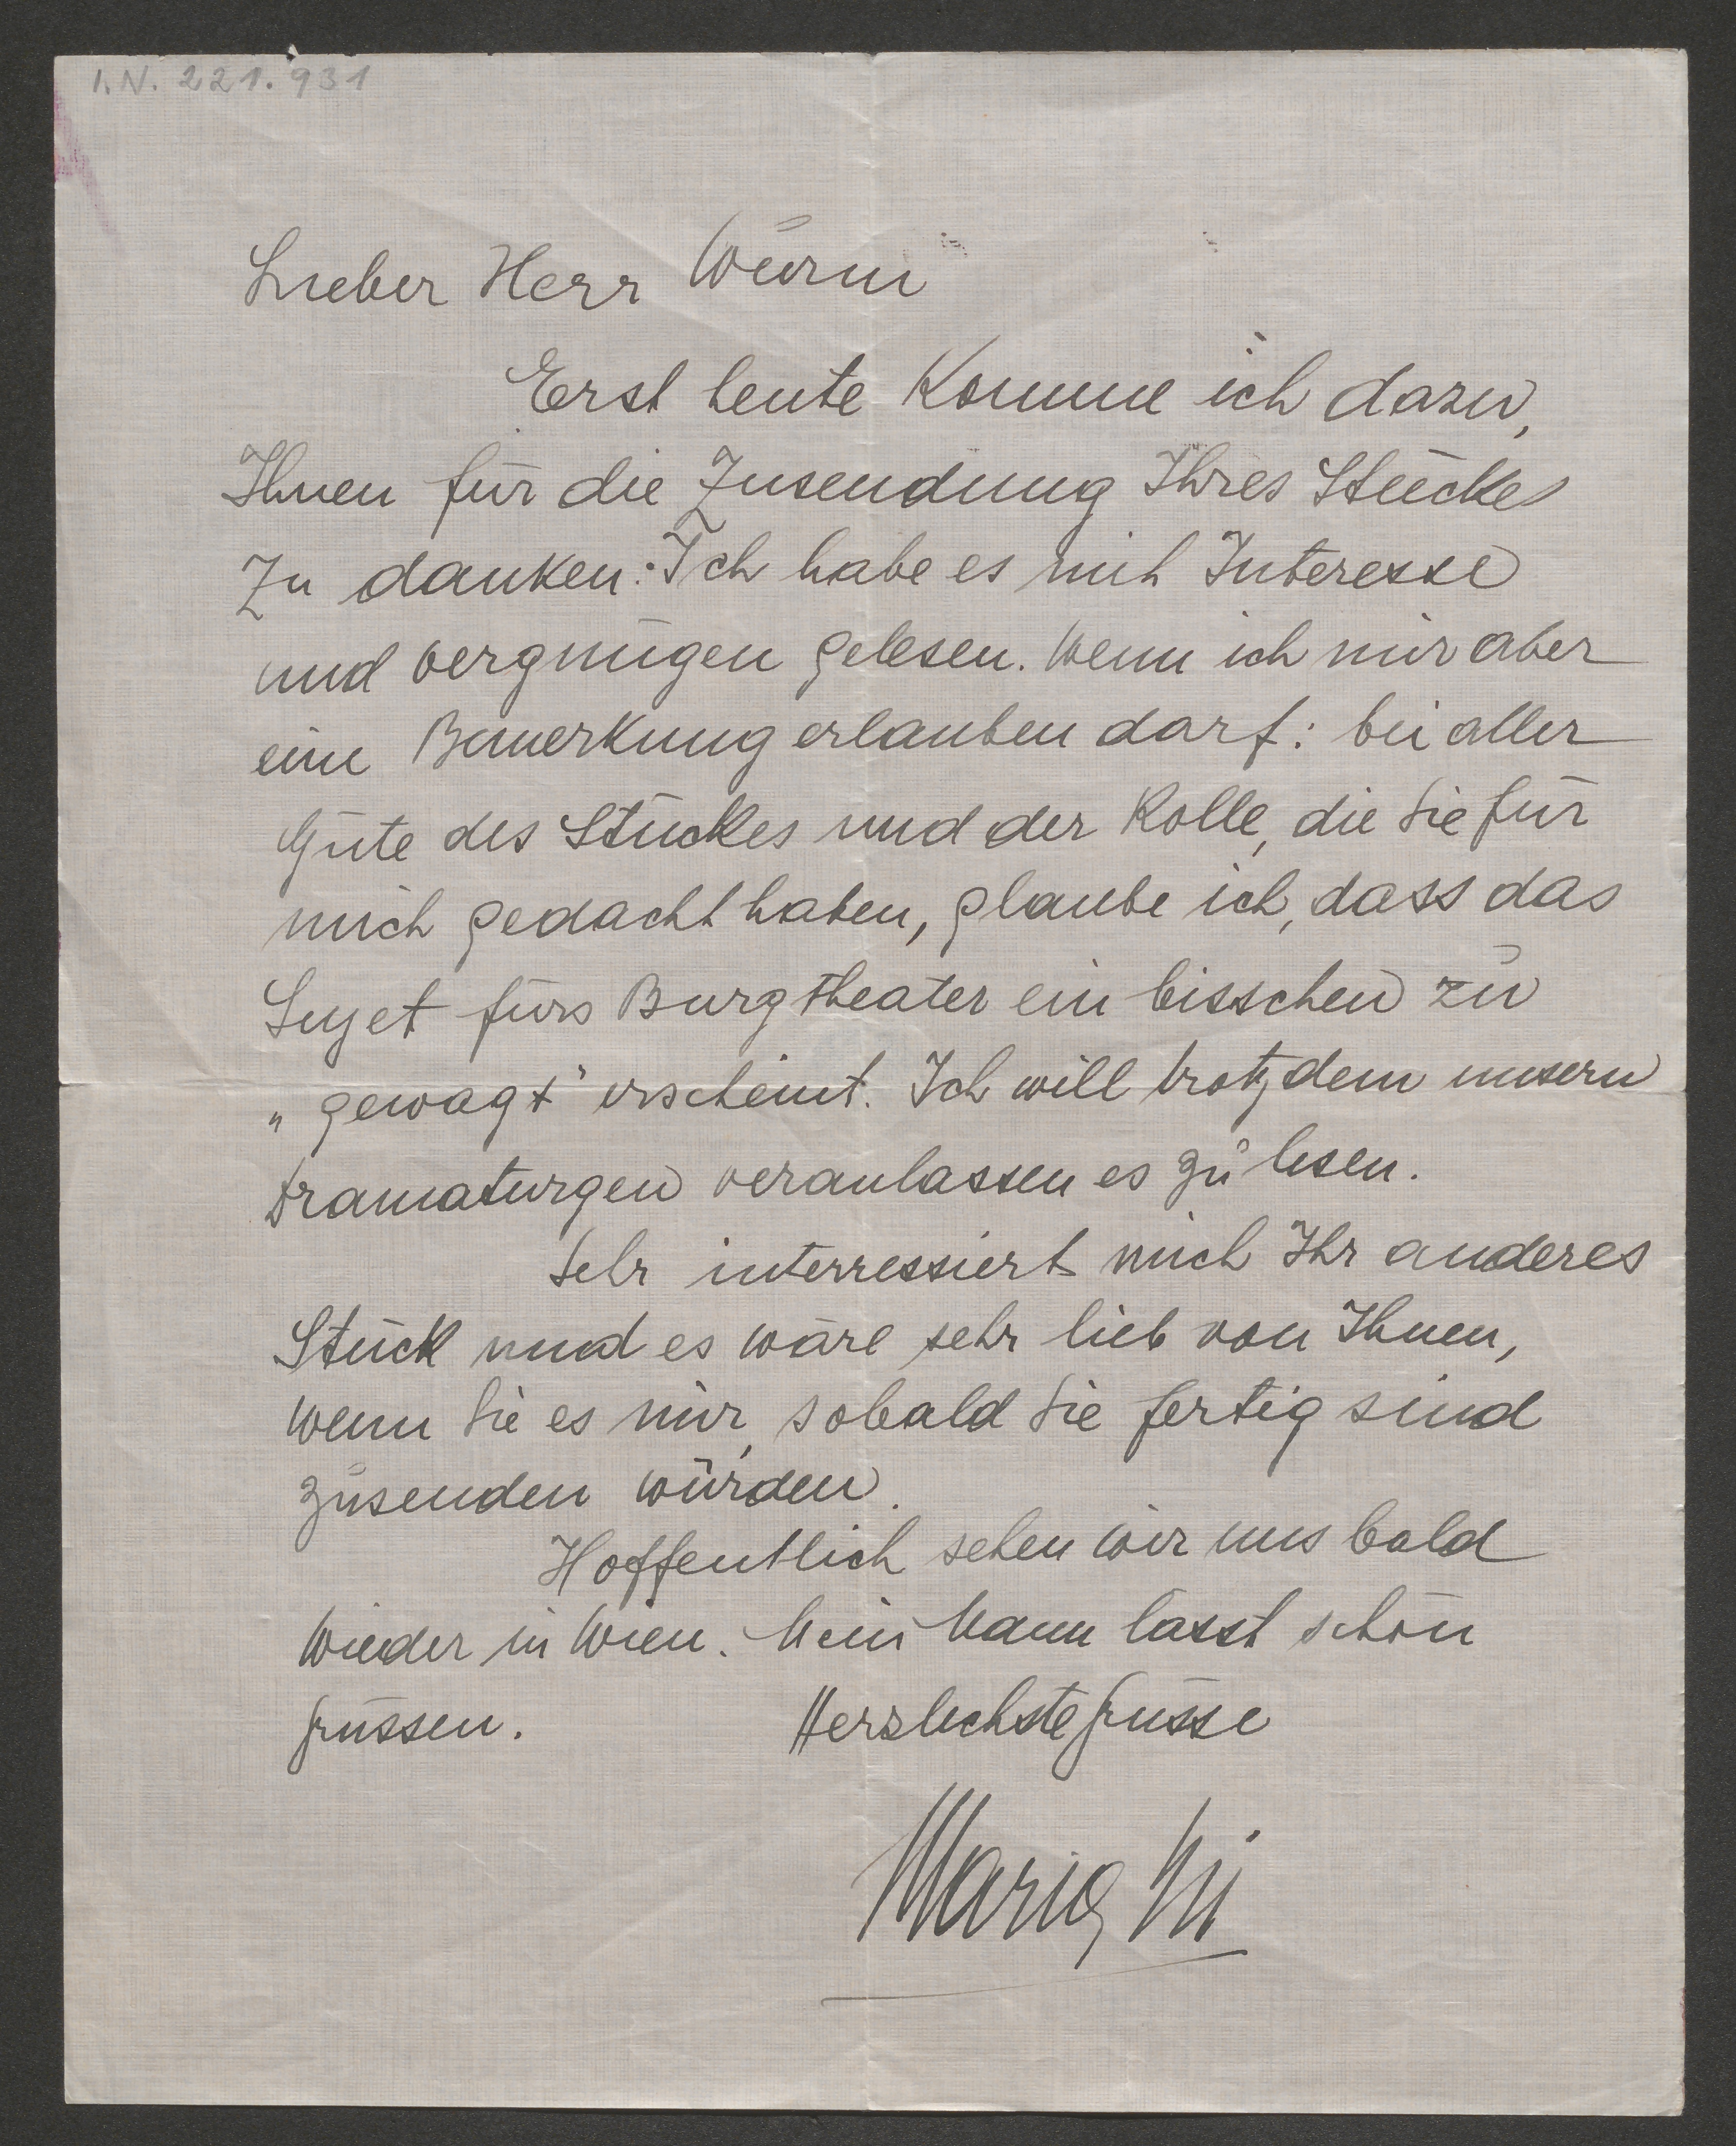 I.N. 221.931
Lieber Herr Wurm
Erst heute komme ich dazu,
Ihnen für die Zusendung Ihres Stückes
zu danken. Ich habe es mit Interesse
und vergnügen gelesen. Wenn ich mir aber
eine Bemerkung erlauben darf: bei aller
Güte des Stückes und der Rolle, die Sie für
mich gedacht haben, glaube ich, dass das
Sujet fürs Burgtheater ein bisschen zu
„gewagt" erscheint. Ich will trotzdem unsern
Dramaturgen veranlassen es zu lesen.
Sehr interressiert mich Ihr anderes
Stück und es wäre sehr lieb von Ihnen,
wenn Sie es mir, sobald Sie fertig sind
zusenden würden.
Hoffentlich sehen wir uns bald
wieder in Wien. Mein Mann lässt schön
grüssen. Herzlichste Grüsse
Maria